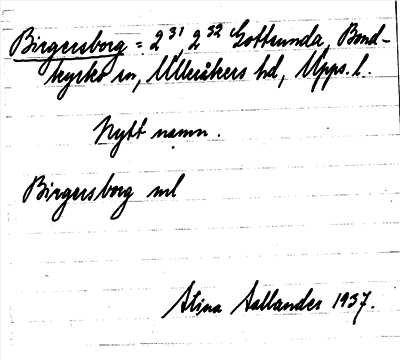 Birgersborg = 2³¹, 2³² Gottsunda, Bond-
kyrko sn, Ulleråkers hd, Upps. l.
Nytt namn.
Birgersborg ml
Stina 1937.